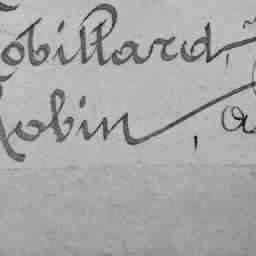 Robillard,
Robin, a